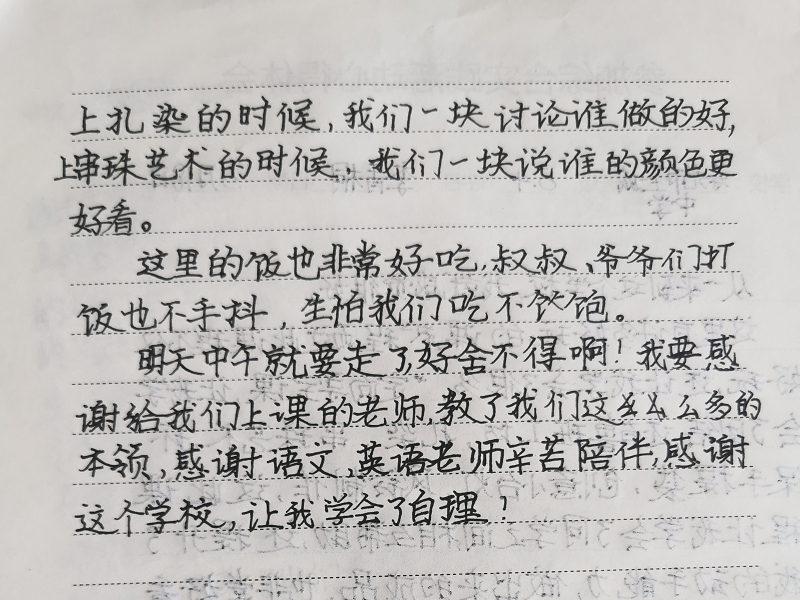 上扎染的时候,我们一块讨论谁做的好,
上串珠艺术的时候,我们一块说谁的颜色更
好看。
这里的饭也非常好吃,叔叔、爷爷们打
饭也不手抖,生怕我们吃不饱。
明天中午就要走了,好舍不得啊!我要感
谢给我们上课的老师,教了我们这么么么多的
本领,感谢语文、英语老师辛苦陪伴,感谢
这个学校,让我学会了自理!